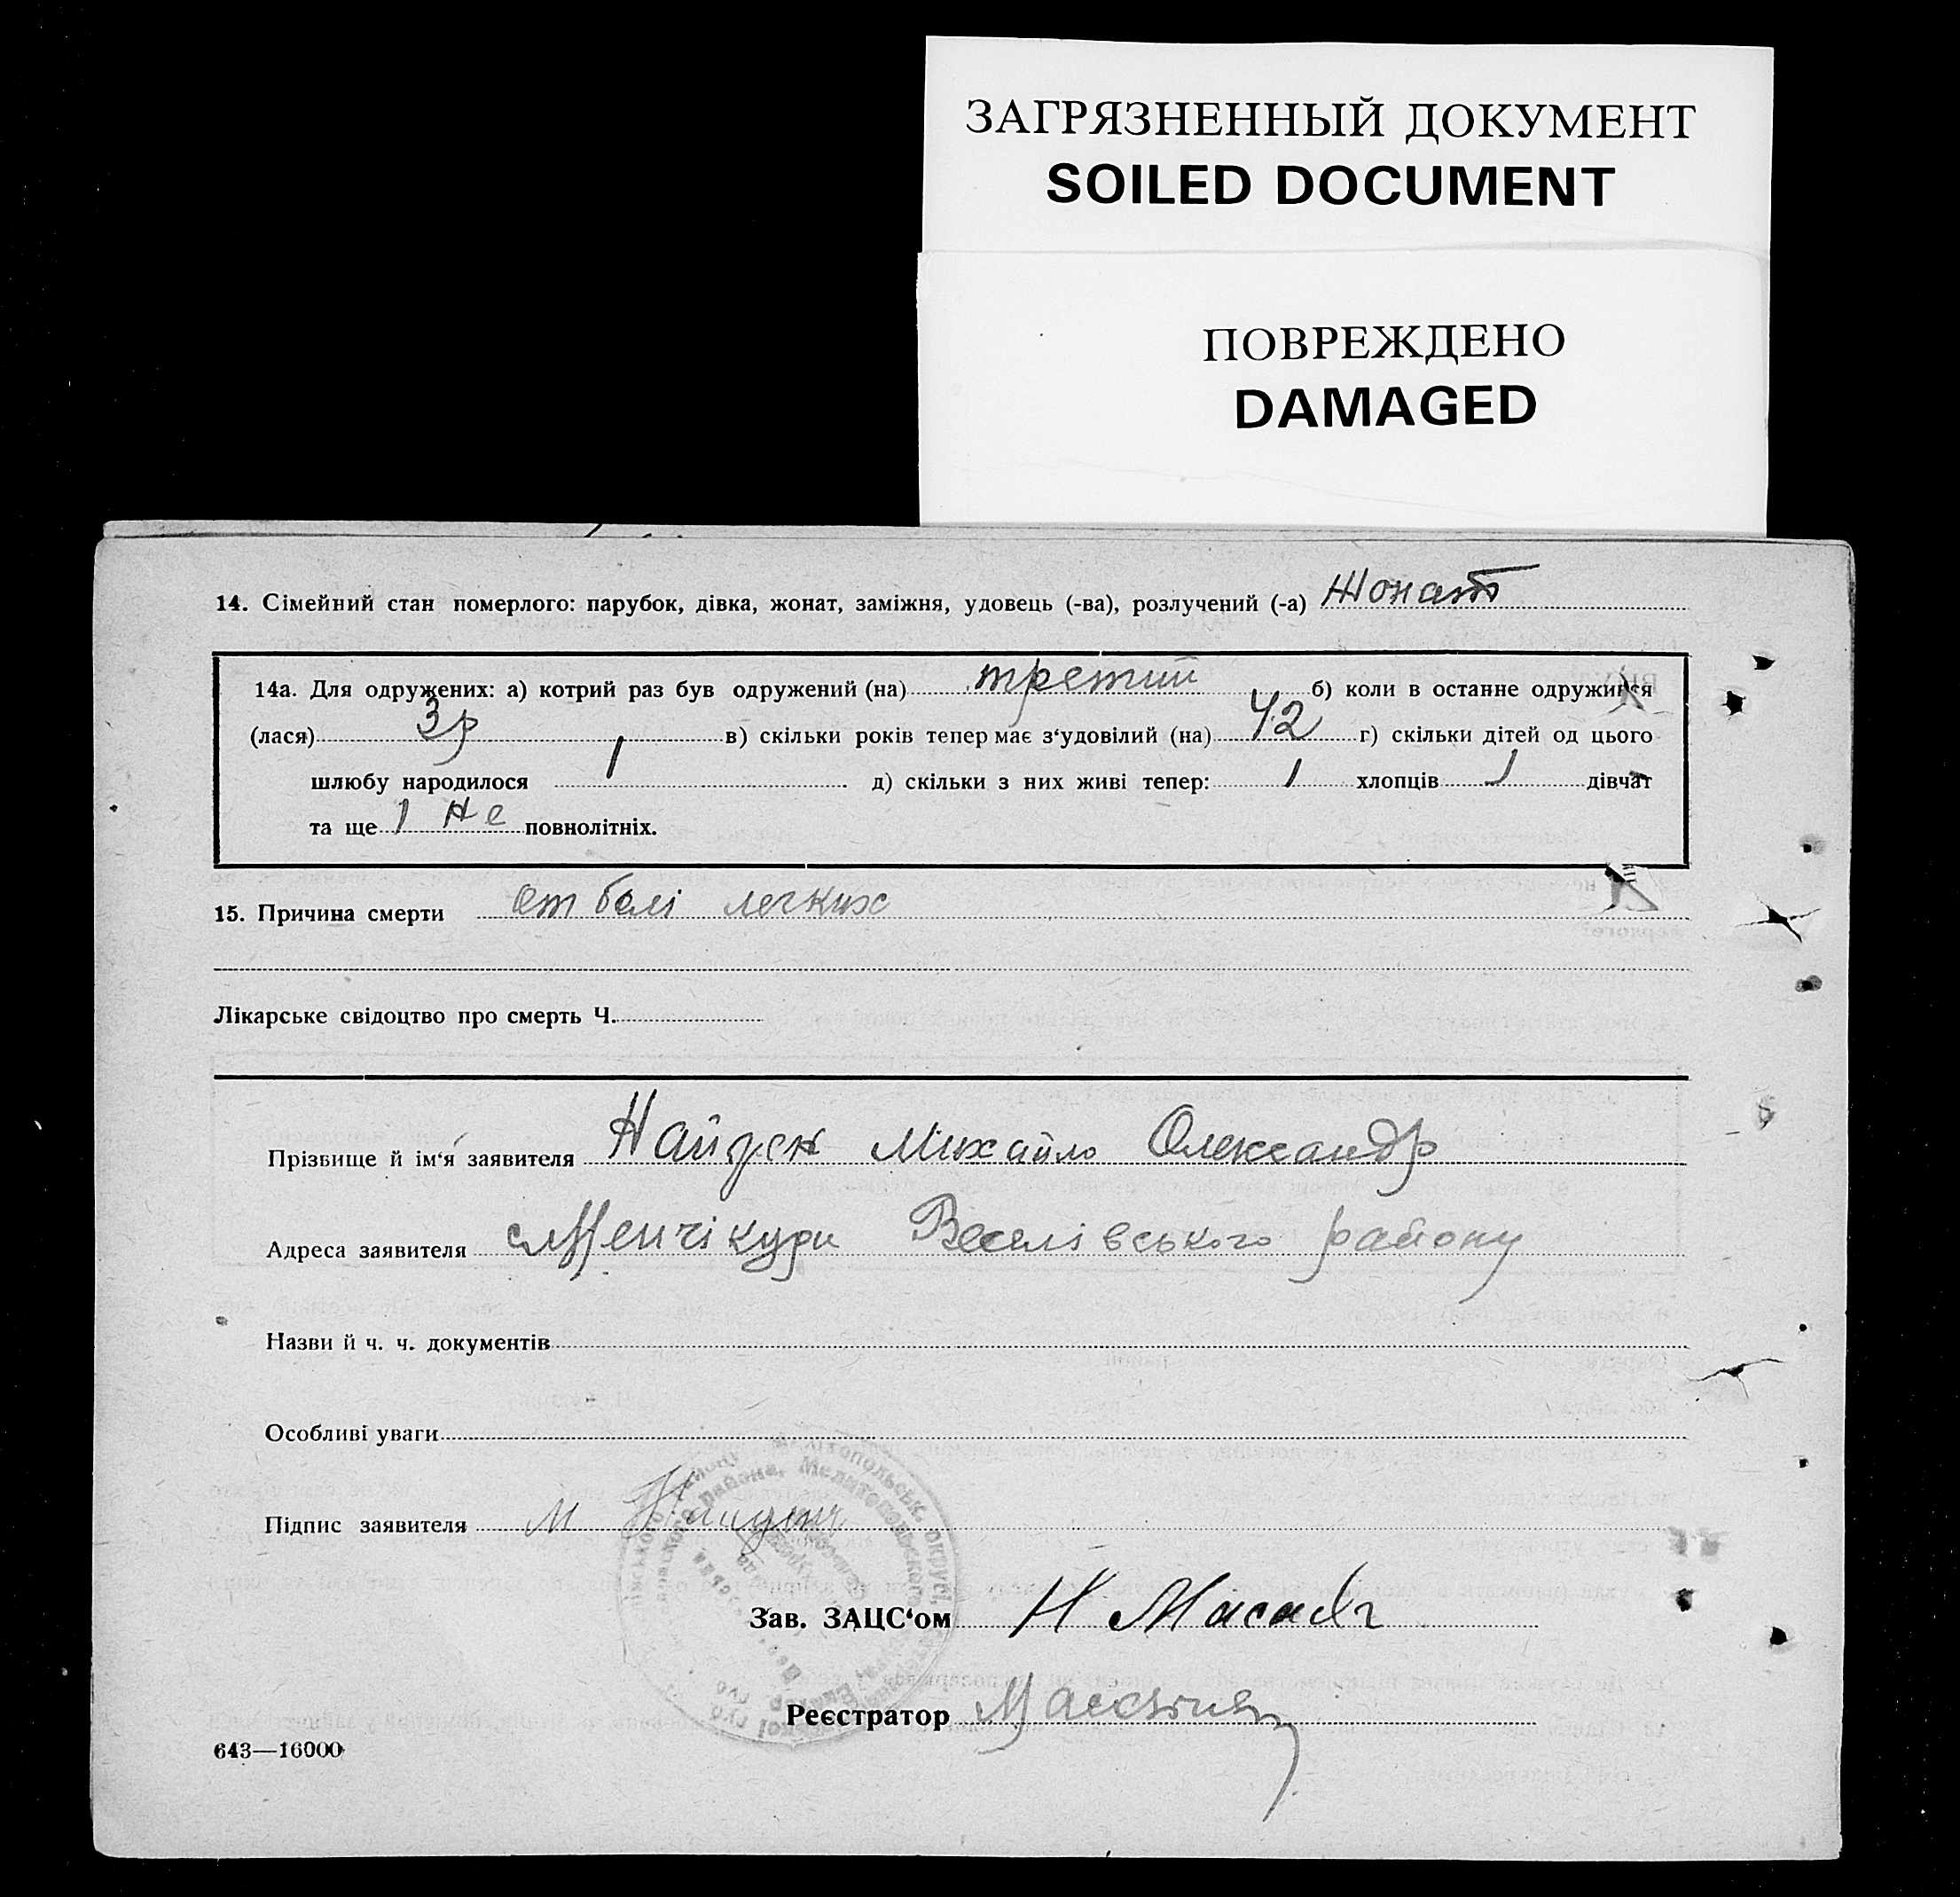 ЗАГРЯЗНЕННЫЙ ДОКУМЕНТ
SOILED DOCUMENT
ПОВРЕЖДЕНО
DAMAGED
14. Сімейний стан померлого: парубок, дівка, жонат, заміжня, удовець (-ва), розлучений (-а) Жонатъ
14а. Для одружених: а) котрий раз був одружений (на) третий б) коли в останне одружився
(лася) 3р в) скільки років тепер має з‘удовілий (на) 42 г) скільки дітей од цього
шлюбу народилося 1 д) скільки з них живі тепер: 1 хлопців 1 дівчат
та ще 1 не повнолітніх.
15. Причина смерти от болі легких
Лікарське свідоцтво про смерть Ч.
Прізвище й ім‘я заявителя Найден Михайло Олександр
Адреса заявителя с Менчікури Веселівського району
Назви й ч. ч. документів
Особливі уваги
Підпис заявителя м Найден
Зав. ЗАЦС‘ом Н
Реєстратор
643—16000